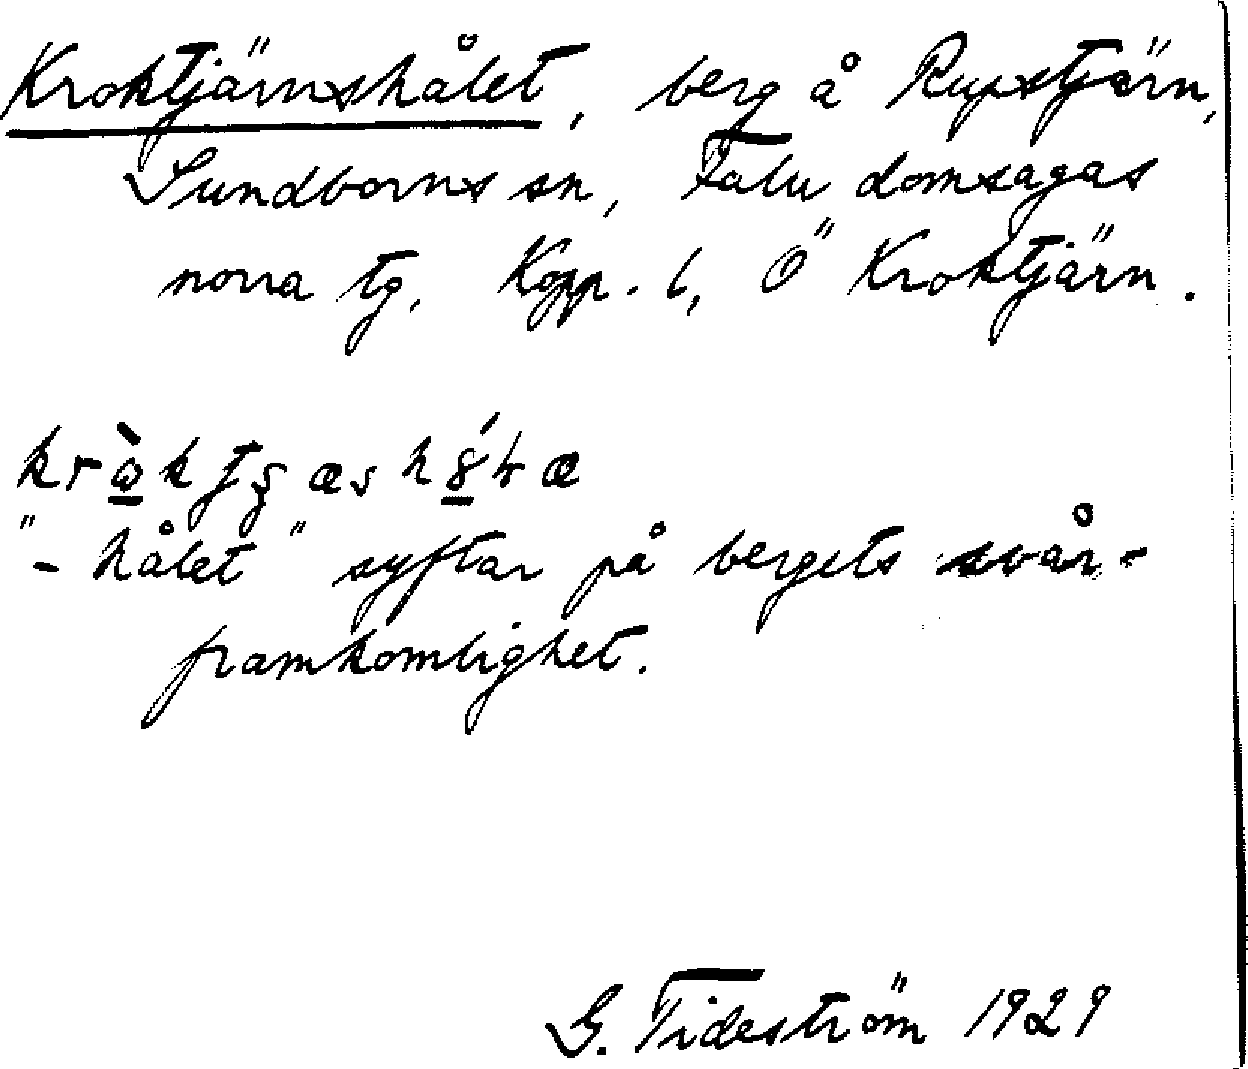 Kroktjärnshålet, berg å Rupstjärn,
Sundborns sn, Falu domsagas
norra tg, Kopp. l, Ö Kroktjärn.
"-hålet" syftar på bergets svår-
framkomlighet.
G. Tideström 1929